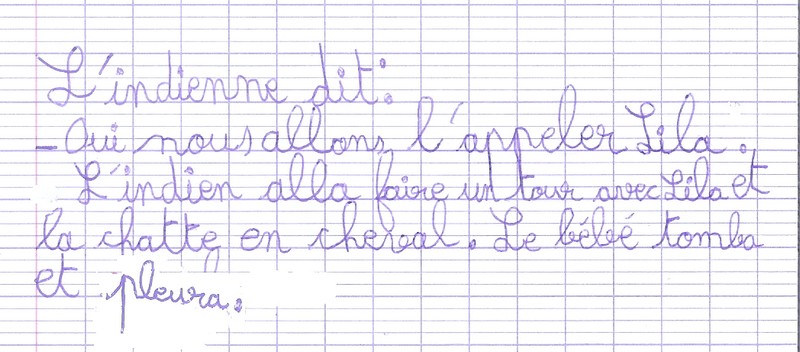 L'indienne dit:
- Oui nous allons l'appeler Lila.
L'indien alla faire un tour avec Lila et
la chatte en cheval. Le bébé tomba
et pleura.